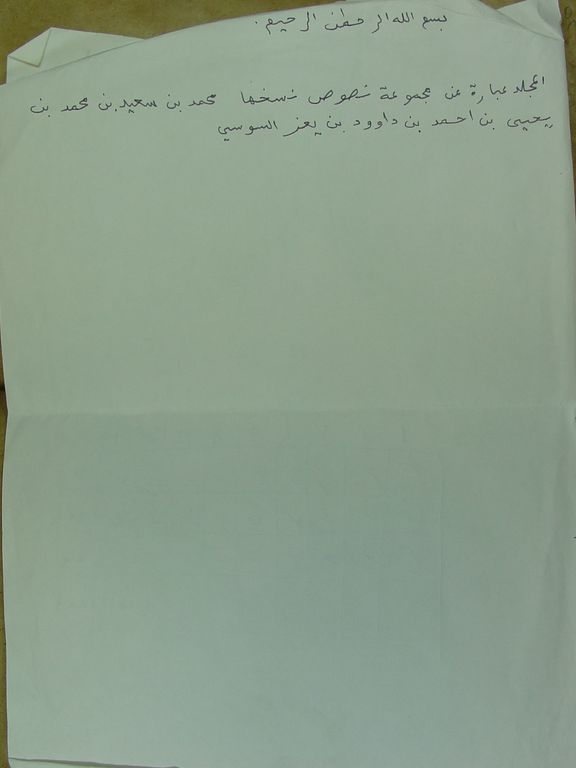 بسم الله الرحمٰن الرحيم.
المجلد عبارة عن مجموعة نصوص نسخها محمد بن سعيد بن محمد بن
يحيى بن احمد بن داوود بن يعز السوسي